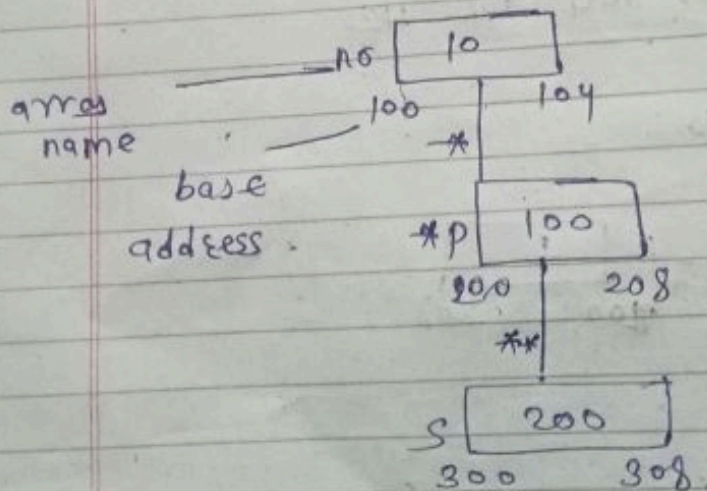 no 10
array
name
100 104
*
base
address.
*p 100
200 208
**
S 200
300 308